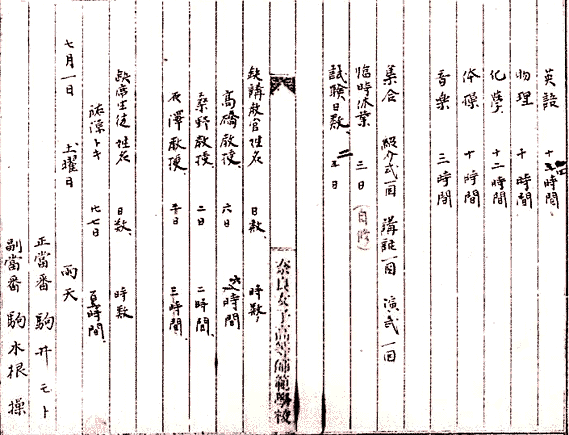 英語 十 時間
物理 十 時間
化學 十二時間
体操 十 時間
音楽 三 時間
集合 紹介式一回 講話一回 演武一回
臨時休業 三日(自修)
試験日数 日
奈良女子高等師範學校
缺講教官姓名 日数 時数
高橋教授 六日 時間
桑野教授 二日 二時間
教授 日 三時間
缺席生徒姓名 日数 時数
トキ 七日 時間
七月一日 土曜日 雨天
正當番 駒井モト
副當番 駒木根操